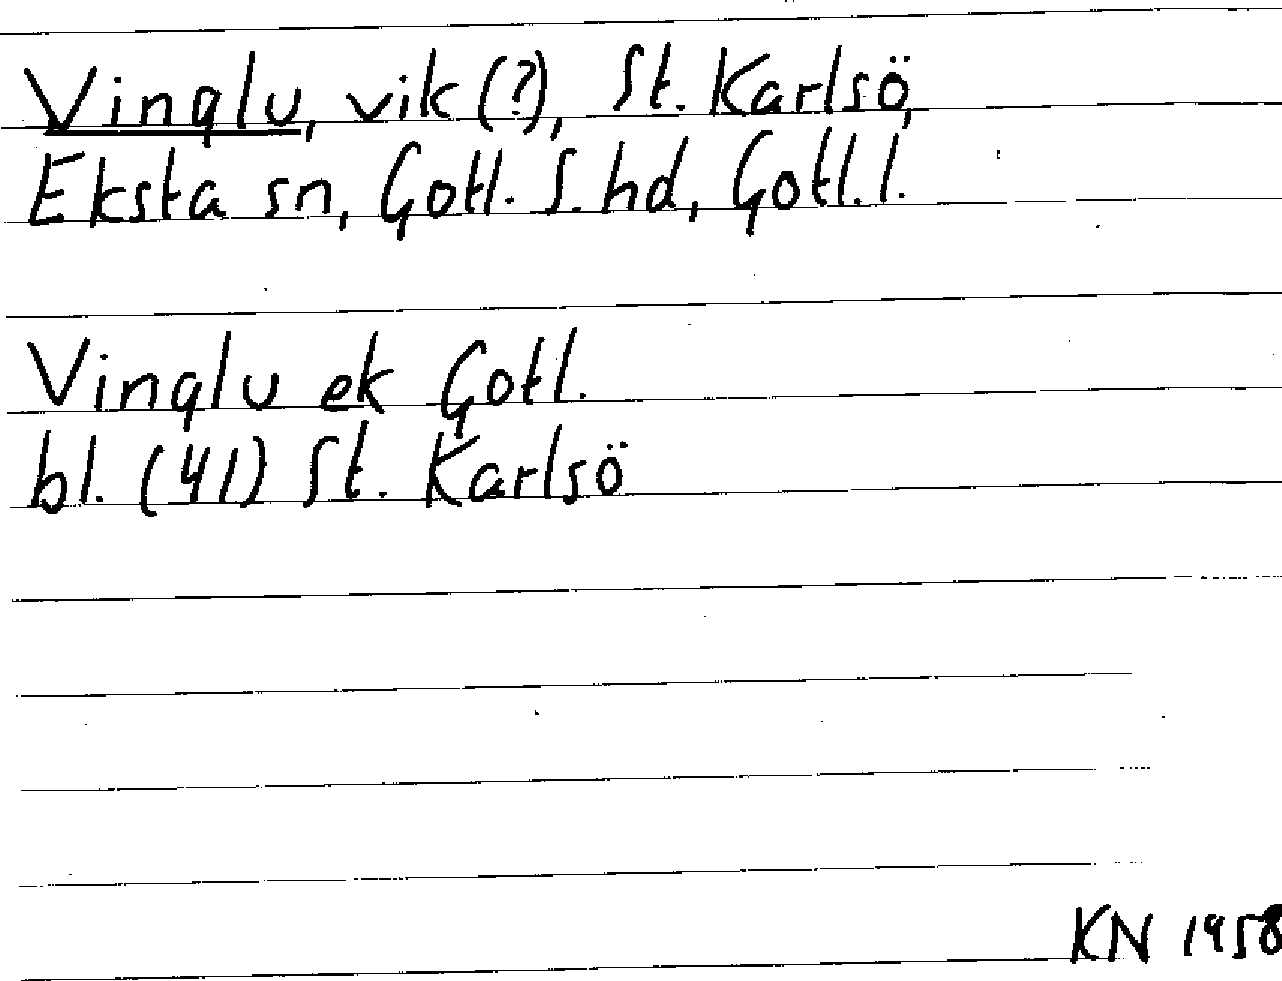 Vinglu, vik (?), St. Karlsö,
Eksta sn, Gotl. S. hd, Gotl. l.
Vinglu ek Gotl.
bl. (41) St. Karlsö
KN 1958